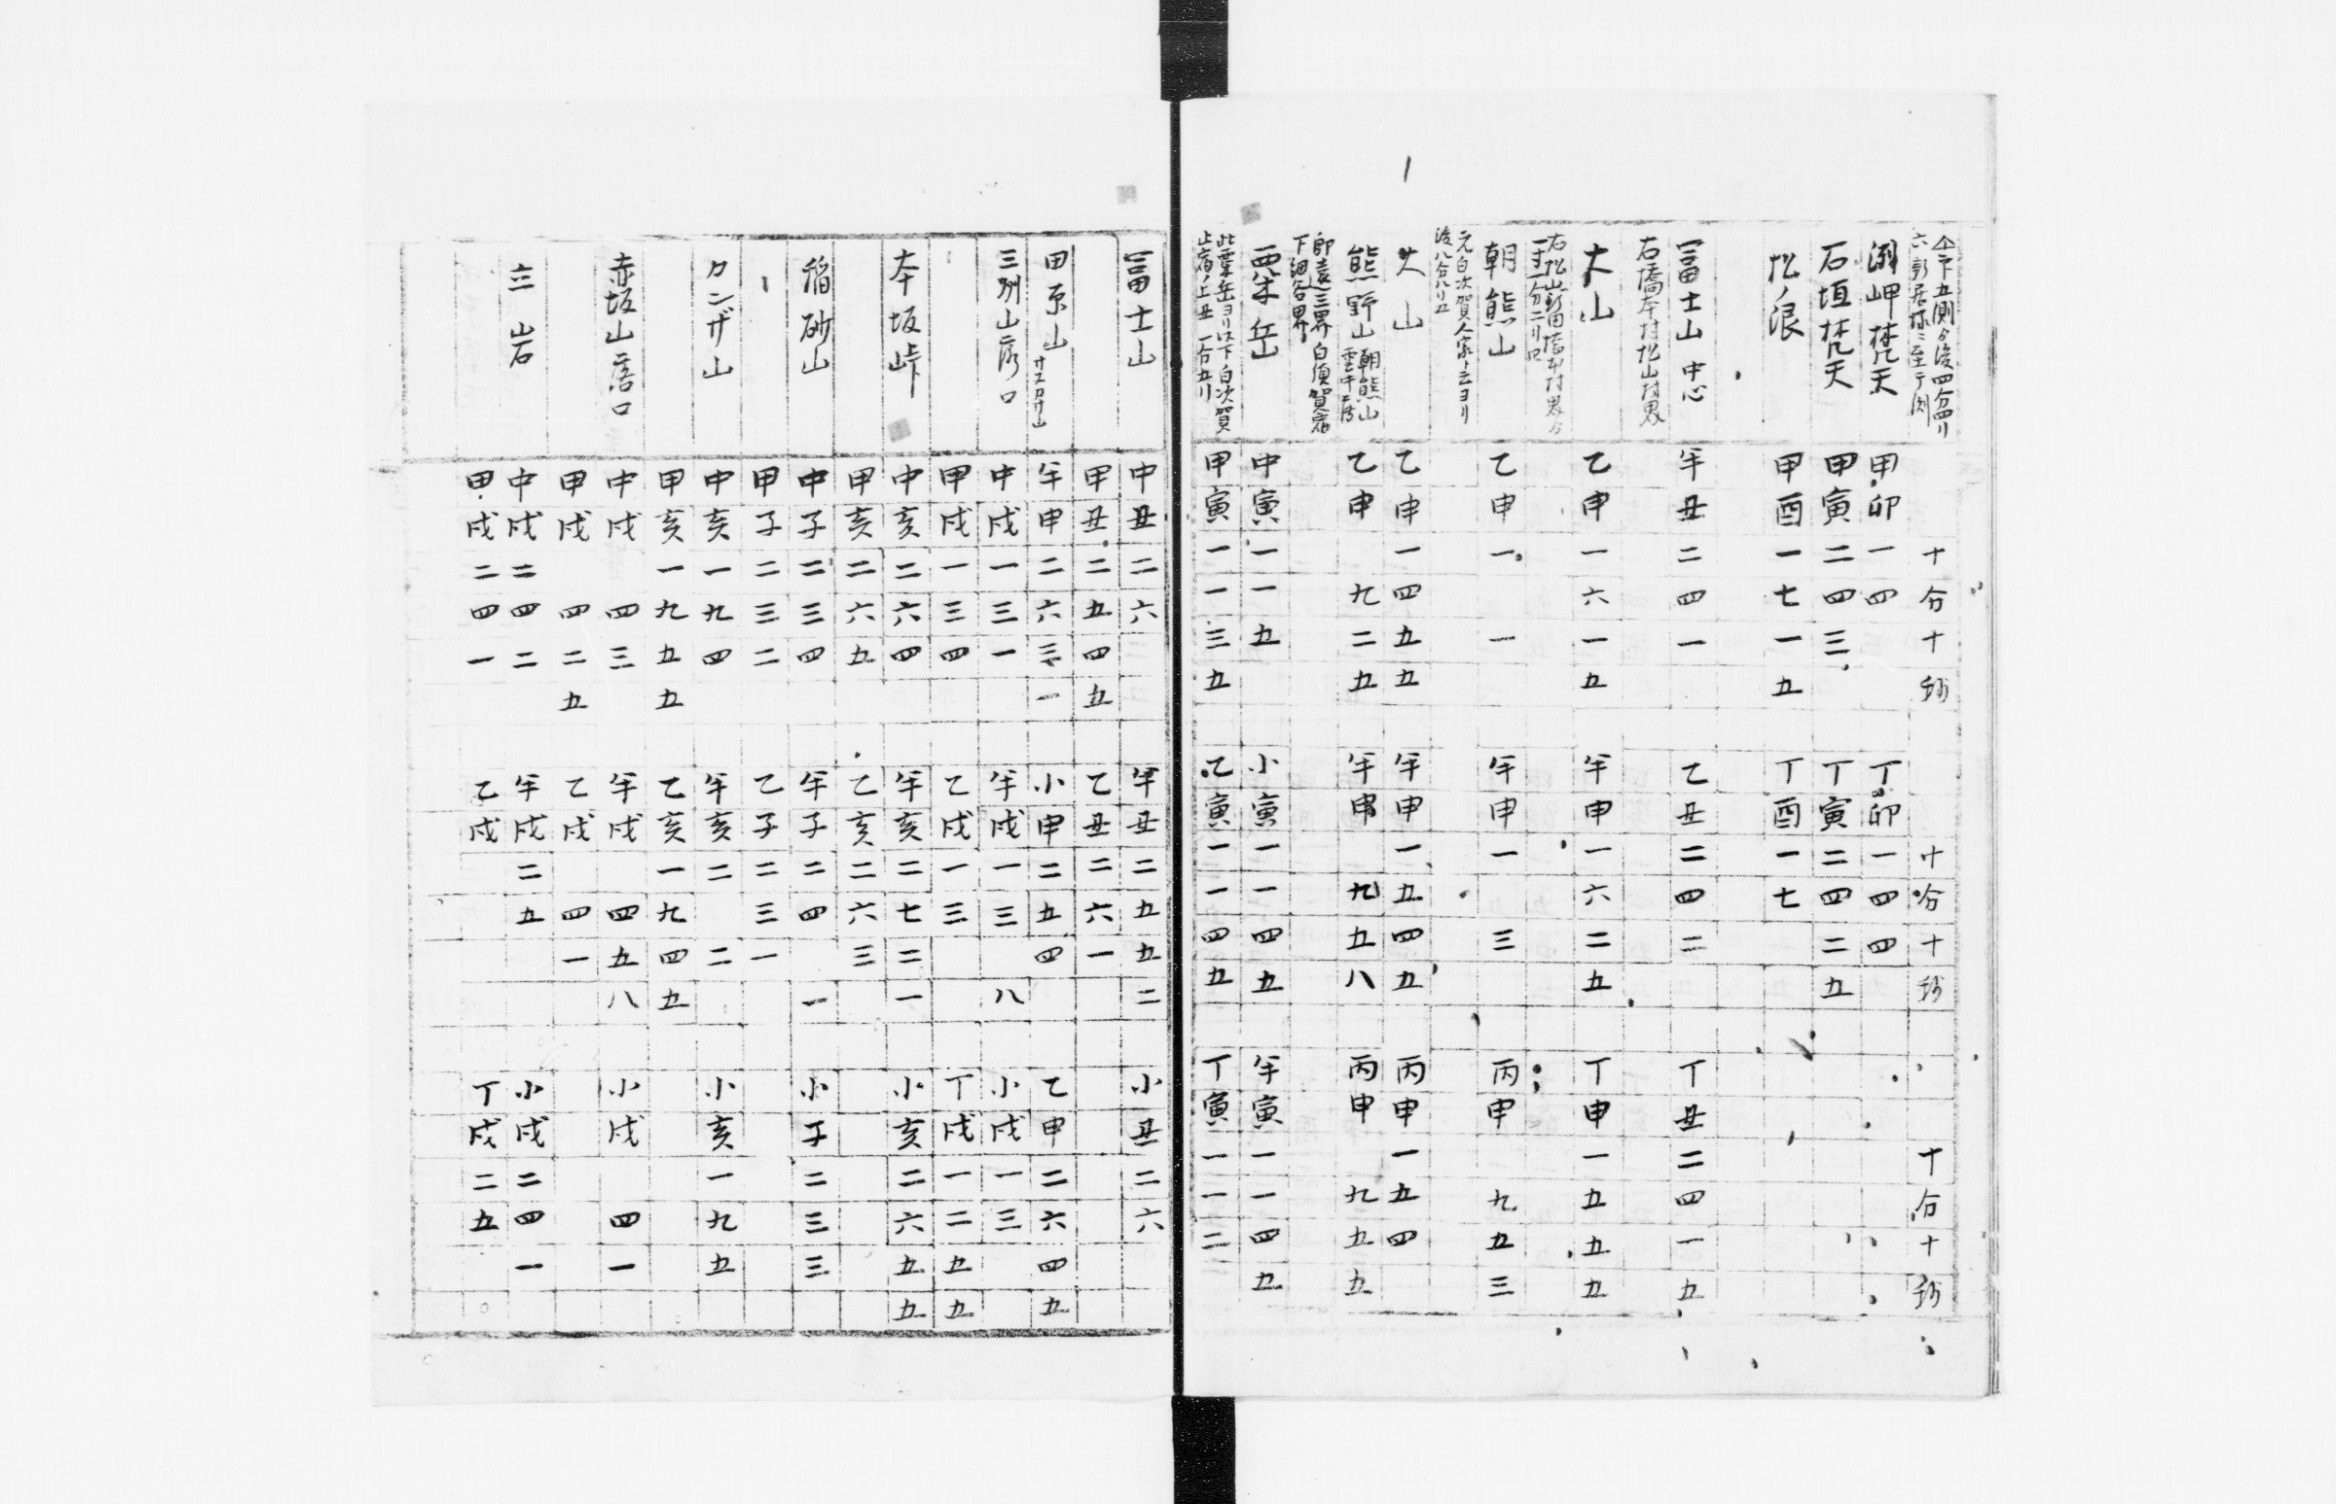 十分十秒 十分十秒 十分十秒
洲岬梵天 甲卯一四 丁卯一四四
石垣梵天 甲寅二四三 丁寅二四二五
松ノ浪 甲酉一七一五 丁酉一七
冨士山 中心 午丑二四一 乙丑二四二 丁丑二四一五
右橋本村松山村界
大山 乙申一六一五 午申一六二五 丁申一五五五
朝熊山 乙申一 一 午申一 三 丙申 九五三
元白次賀人家ト云ヨリ
大山 乙申一四五五 午申一五四五 丙申一五四
熊野山 朝熊山 乙申 九二五 午申 九五八 丙申 九五五
下細谷界
栗岳 中寅一一五 小寅一一四五 午寅一一四五
甲寅一一三五 乙寅一一四五 丁寅一一二
冨士山 中丑二六 午丑二五五二 小丑二六
甲丑二五四五 乙丑二六一
田原山 午申二六三一 小申二五四 乙申二六四五
三州山落口 中戌一三一 午戌一三 八 小戌一三
甲戌一三四 乙戌一三 丁戌一二五五
本坂峠 中亥二六四 午亥二七二一 小亥二六五五
甲亥二六五 乙亥二六三
稲砂山 中子二三四 午子二四 一 小子二三三
甲子二三二 乙子二三一
カンザ山 中亥一九四 午亥二 二 小亥一九五
甲亥一九五五 乙亥一九四五
赤坂山落口 中戌 四三 午戌 四五八 小戌 四一
甲戌 四二五 乙戌 四一
立岩 中戌二四二 午戌二五 小戌二四一
甲戌二四一 乙戌 丁戌二五